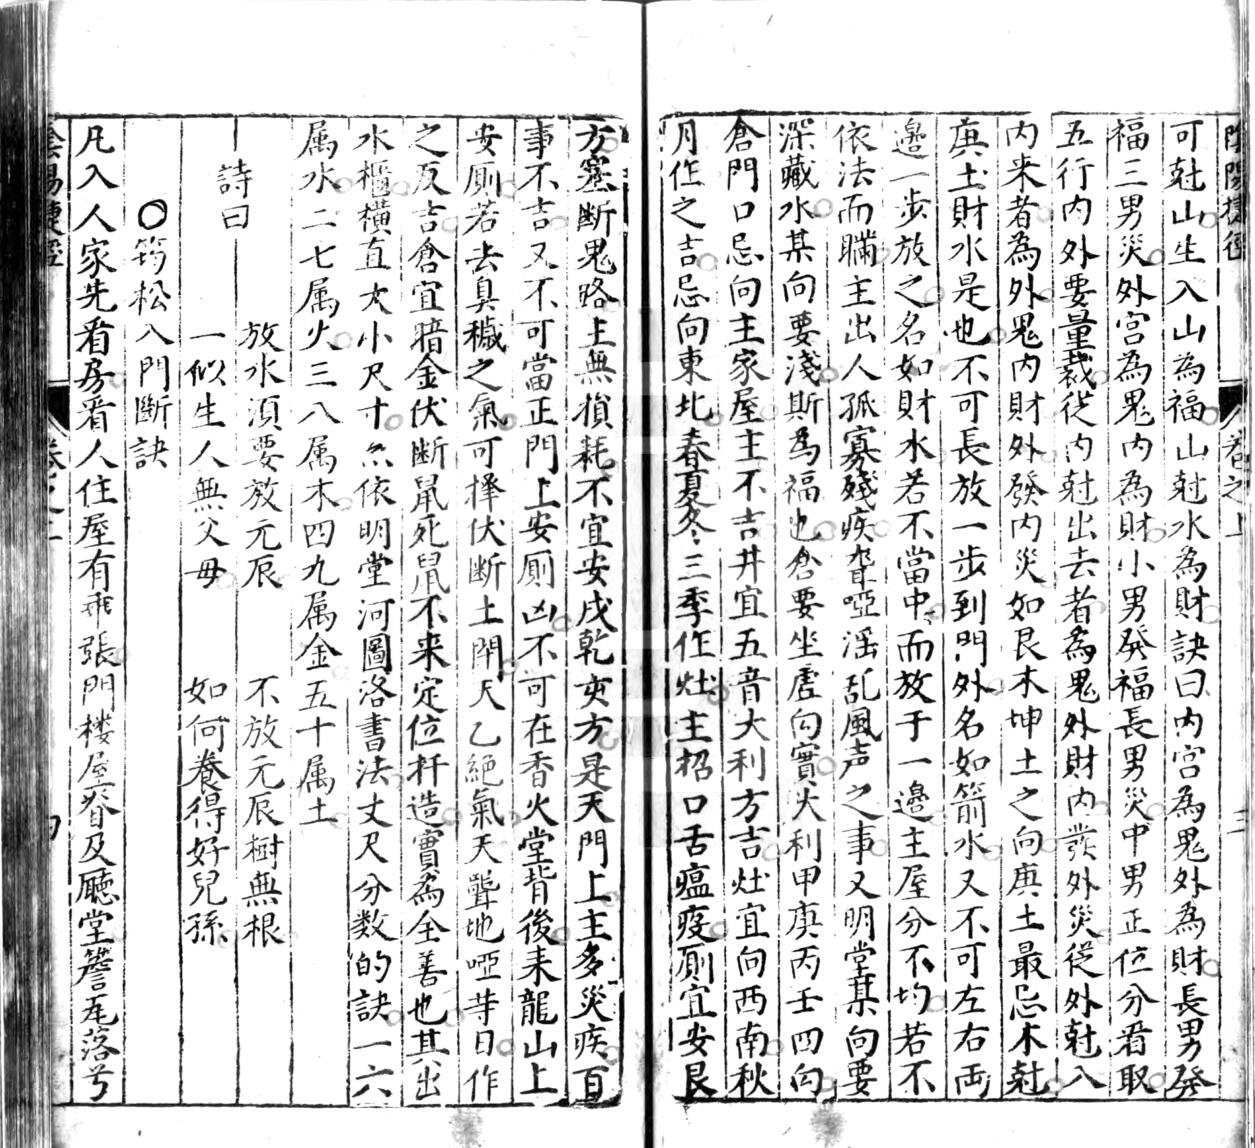 陰陽捷徑
卷之上
三
可尅山生入山為福山尅水為財訣曰内宫為鬼外為財長男發
福三男災外宫為鬼内為財小男發福長男災中男正位分看取
五行内外要量裁從内尅出去者為鬼外財内發外災從外尅入
内来者為外鬼内財外發内災如艮木坤土之向庚土最忌木尅
庚土財水是也不可長放一步到門外名如箭水又不可左右两
邉一步放之名如財水若不當中而放于一邉主屋分不均若不
依法而瞞主出人孤寡殘疾聾啞滛乱風声之事又明堂某向要
深藏水某向要淺斯為福也倉要坐虚向實大利甲庚丙壬四向
倉門口忌向主家屋主不吉井宜五音大利方吉灶宜向西南秋
月作之吉忌向東北春夏冬三季作灶主招口舌瘟疫厕宜安艮
方塞断鬼路主無損耗不宜安戌乾亥方是天門上主多災疾百
事不吉又不可當正門上安厕凶不可在香火堂背後来龍山上
安厕若去臭穢之氣可擇伏断土閉天乙絶氣天聾地啞等日作
之反吉倉宜暗金伏断鼠死鼠不来定位杆造實為全善也其出
水櫃横直大小尺寸亦依明堂河圖洛書法丈尺分数的訣一六
属水二七属火三八属木四九属金五十属土
詩曰
放水須要放元辰　不放元辰樹無根
一似生人無父母　如何養得好兒孫
○筠松入門斷訣
凡入人家先看房看人住屋有乖張門楼屋脊及廳堂簷尾落兮
陰陽捷徑
卷之上
四